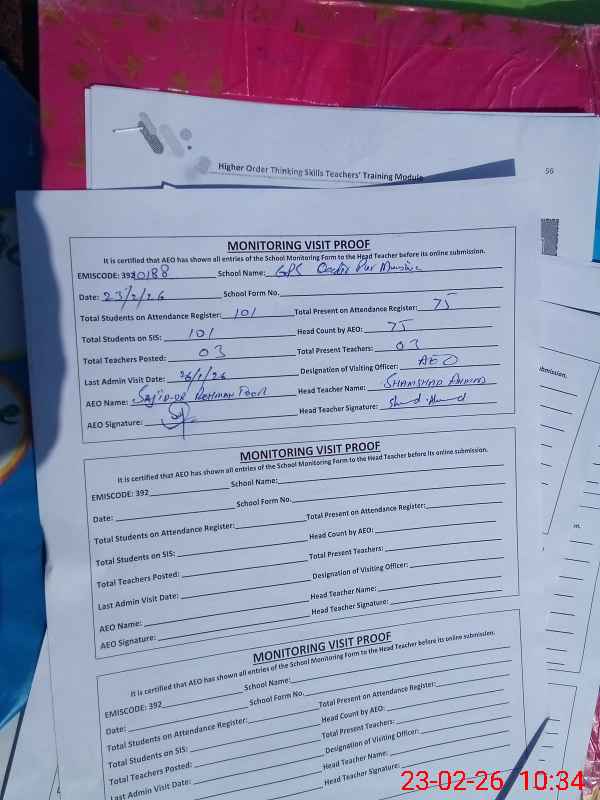 Higher Order Thinking Skills Teachers' Training Module
56
MONITORING VISIT PROOF
It is certified that AEO has shown all entries of the School Monitoring Form to the Head Teacher before its online submission.
EMISCODE: 39210188 School Name: GPS Qadir Pur
Date: 23/2/26 School Form No.
Total Students on Attendance Register: 101 Total Present on Attendance Register: 75
Total Students on SIS: 101 Head Count by AEO: 75
Total Teachers Posted: 03 Total Present Teachers: 03
Last Admin Visit Date: 26/1/26 Designation of Visiting Officer: AEO
AEO Name: Sajid-ur Rehman Head Teacher Name: SHAMSHAD AHMAD
AEO Signature: Head Teacher Signature:
MONITORING VISIT PROOF
It is certified that AEO has shown all entries of the School Monitoring Form to the Head Teacher before its online submission.
EMISCODE: 392 School Name:
Date: School Form No.
Total Students on Attendance Register: Total Present on Attendance Register:
Total Students on SIS: Head Count by AEO:
Total Teachers Posted: Total Present Teachers:
Last Admin Visit Date: Designation of Visiting Officer:
AEO Name: Head Teacher Name:
AEO Signature: Head Teacher Signature:
MONITORING VISIT PROOF
It is certified that AEO has shown all entries of the School Monitoring Form to the Head Teacher before its online submission.
EMISCODE: 392 School Name:
Date: School Form No.
Total Students on Attendance Register: Total Present on Attendance Register:
Total Students on SIS: Head Count by AEO:
Total Teachers Posted: Total Present Teachers:
Last Admin Visit Date: Designation of Visiting Officer:
AEO Name: Head Teacher Name:
Head Teacher Signature:
bmission.
n.
23-02-26 10:34